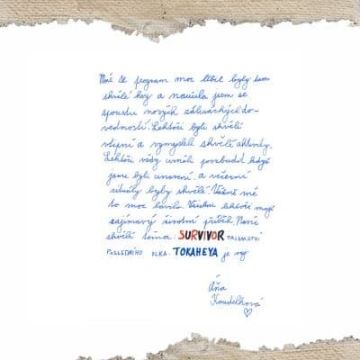 Mně se program moc líbil byly tam
skvělé hry a naučila jsem se
spoustu nových zálesáckých do-
vedností. Lektoři byli skvělí
vtipní a vymysleli skvělé aktivity.
Lektoři vždy uměli povzbudit když
jsme byli unavení a večerní
rituály byly skvělé. Vážně mě
to moc bavilo. Všichni lektoři mají
zajímavý životní příběh. Navíc
skvělé téma SURVIVOR TAJEMSTVÍ
POSLEDNÍHO VLKA. TOKAHEYA je
Áňa
Koudelková